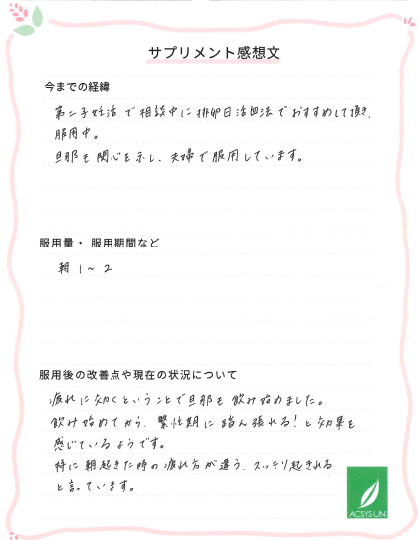 サプリメント感想文
今までの経緯
第二子妊活で相談中に排卵日活面法でおすすめして頂き、
服用中。
旦那も関心を示し、夫婦で服用しています。
服用量・服用期間など
朝 1〜2
服用後の改善点や現在の状況について
疲れに効くということで旦那も飲み始めました。
飲み始めてから、繁忙期に踏ん張れる!と効果を
感じているようです。
特に朝起きた時の疲れ方が違う、スッキリ起きれる
と言っています。
ACSYSUN